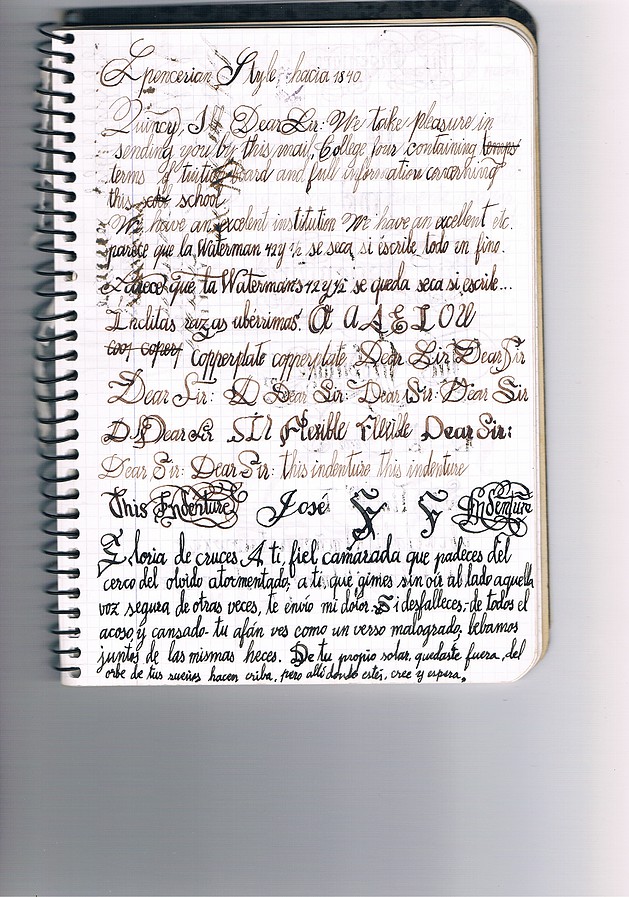 Spencerian Style, hacia 1840.
Quincy, Ill Dear Sir: We take pleasure in
sending you by this mail, College four containing temps
terms of tuition board and full information concerning
this scol school
We have an excelent institution We have an excellent etc.
parece que la Waterman 42 y ½ se seca si escribe todo en fino.
Parece que la Waterman's 42 y ½ se queda seca si escribe...
Inclitas razas ubérrimas. A A E L O W
copy Copperplate copperplate Dear Sir Dear Sir
Dear Sir: D Dear Sir: Dear Sir: Dear Sir
D. Dear Sir Sir Flexible Flexible Dear Sir:
Dear Sir: Dear Sir: this indenture this indenture
This Indenture José F F Indenture
Gloria de cruces A ti, fiel camarada que padeces del
cerco del olvido atormentado, a ti, que gimes sin oir al lado aquella
voz segura de otras veces, te envío mi dolor. Si desfalleces, de todos el
acoso y cansado tu afán ves como un verso malogrado; bebamos
juntos de las mismas heces. De tu propio solar, quedaste fuera, del
orbe de tus sueños hacen criba, pero allí donde estés, cree y espera.